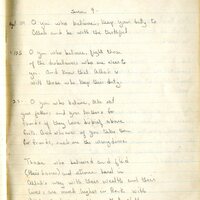 Sura 9.
O you who believe, keep your duty to
Allah and be with the truthful
O you who believe, fight those
of the disbelievers who are near to
you and know that Allah is
with those who keep their duty.
O you who believe, take not
your fathers and your brothers for
friends if they love disbelief above
faith. And whoever of you takes them
for friends, such are the wrongdoers.
Those who believed and fled
(their homes) and strove hard in
Allah's way with their wealth and their
lives are much higher in rank with